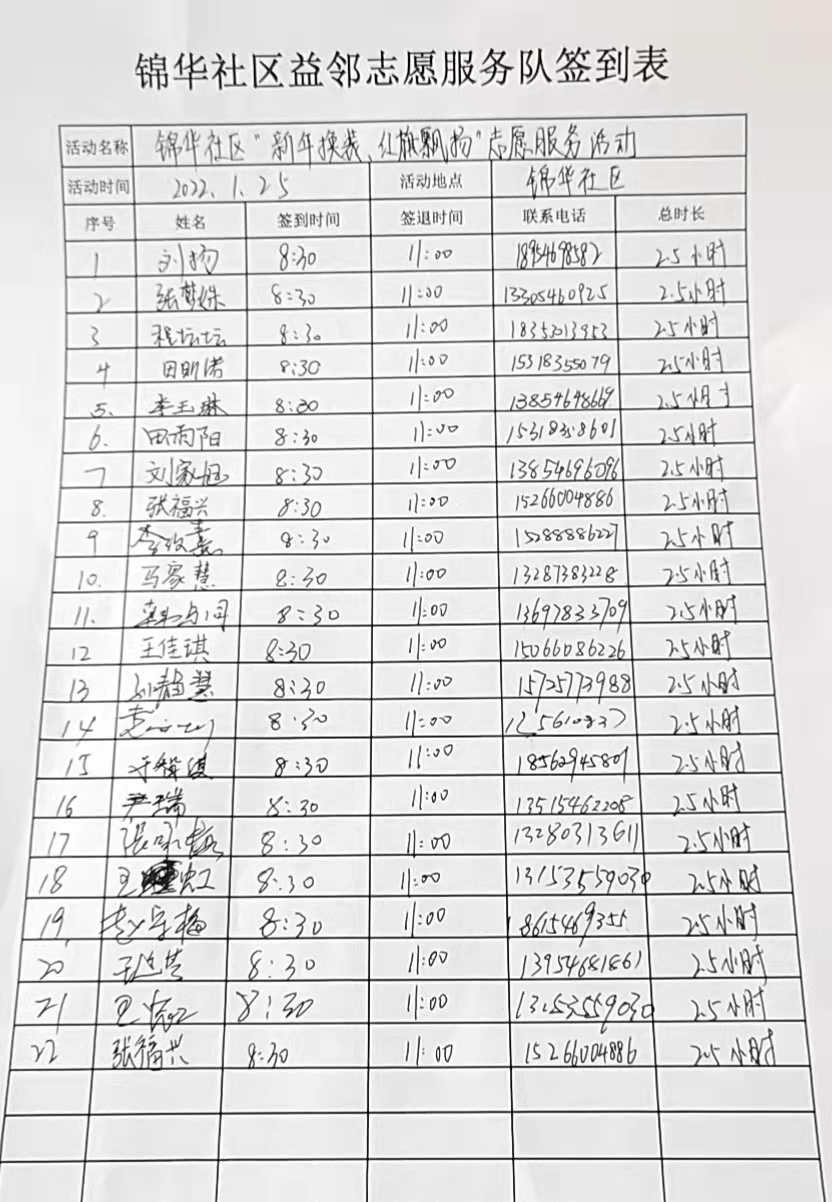 锦华社区益邻志愿服务队签到表
活动名称 锦华社区“新年换装、红旗飘扬”志愿服务活动
活动时间 2022.1.25 活动地点 锦华社区
序号 姓名 签到时间 签退时间 联系电话 总时长
1 刘扬 8:30 11:00 18954698582 2.5小时
2 张梦姝 8:30 11:00 13305460925 2.5小时
3 程坛坛 8:30 11:00 18352013953 2.5小时
4 田则诺 8:30 11:00 15318355079 2.5小时
5. 李玉琳 8:30 11:00 13854648669 2.5小时
6. 田雨阳 8:30 11:00 15318358601 2.5小时
7 刘家旭 8:30 11:00 13854696096 2.5小时
8. 张福兴 8:30 11:00 15266004886 2.5小时
9 8:30 11:00 15288886227 2.5小时
10. 马家慧 8:30 11:00 13287383228 2.5小时
11. 8:30 11:00 13697833709 2.5小时
12 王佳琪 8:30 11:00 15066086226 2.5小时
13 刘静慧 8:30 11:00 15725773988 2.5小时
14 8:30 11:00 2.5小时
15 8:30 11:00 18562945801 2.5小时
16 尹瑞 8:30 11:00 13515462208 2.5小时
17 8:30 11:00 13280313611 2.5小时
18 8:30 11:00 13153559030 2.5小时
19 8:30 11:00 18615469355 2.5小时
20 8:30 11:00 13954681861 2.5小时
21 8:30 11:00 2.5小时
22 张福兴 8:30 11:00 15266004886 2.5小时